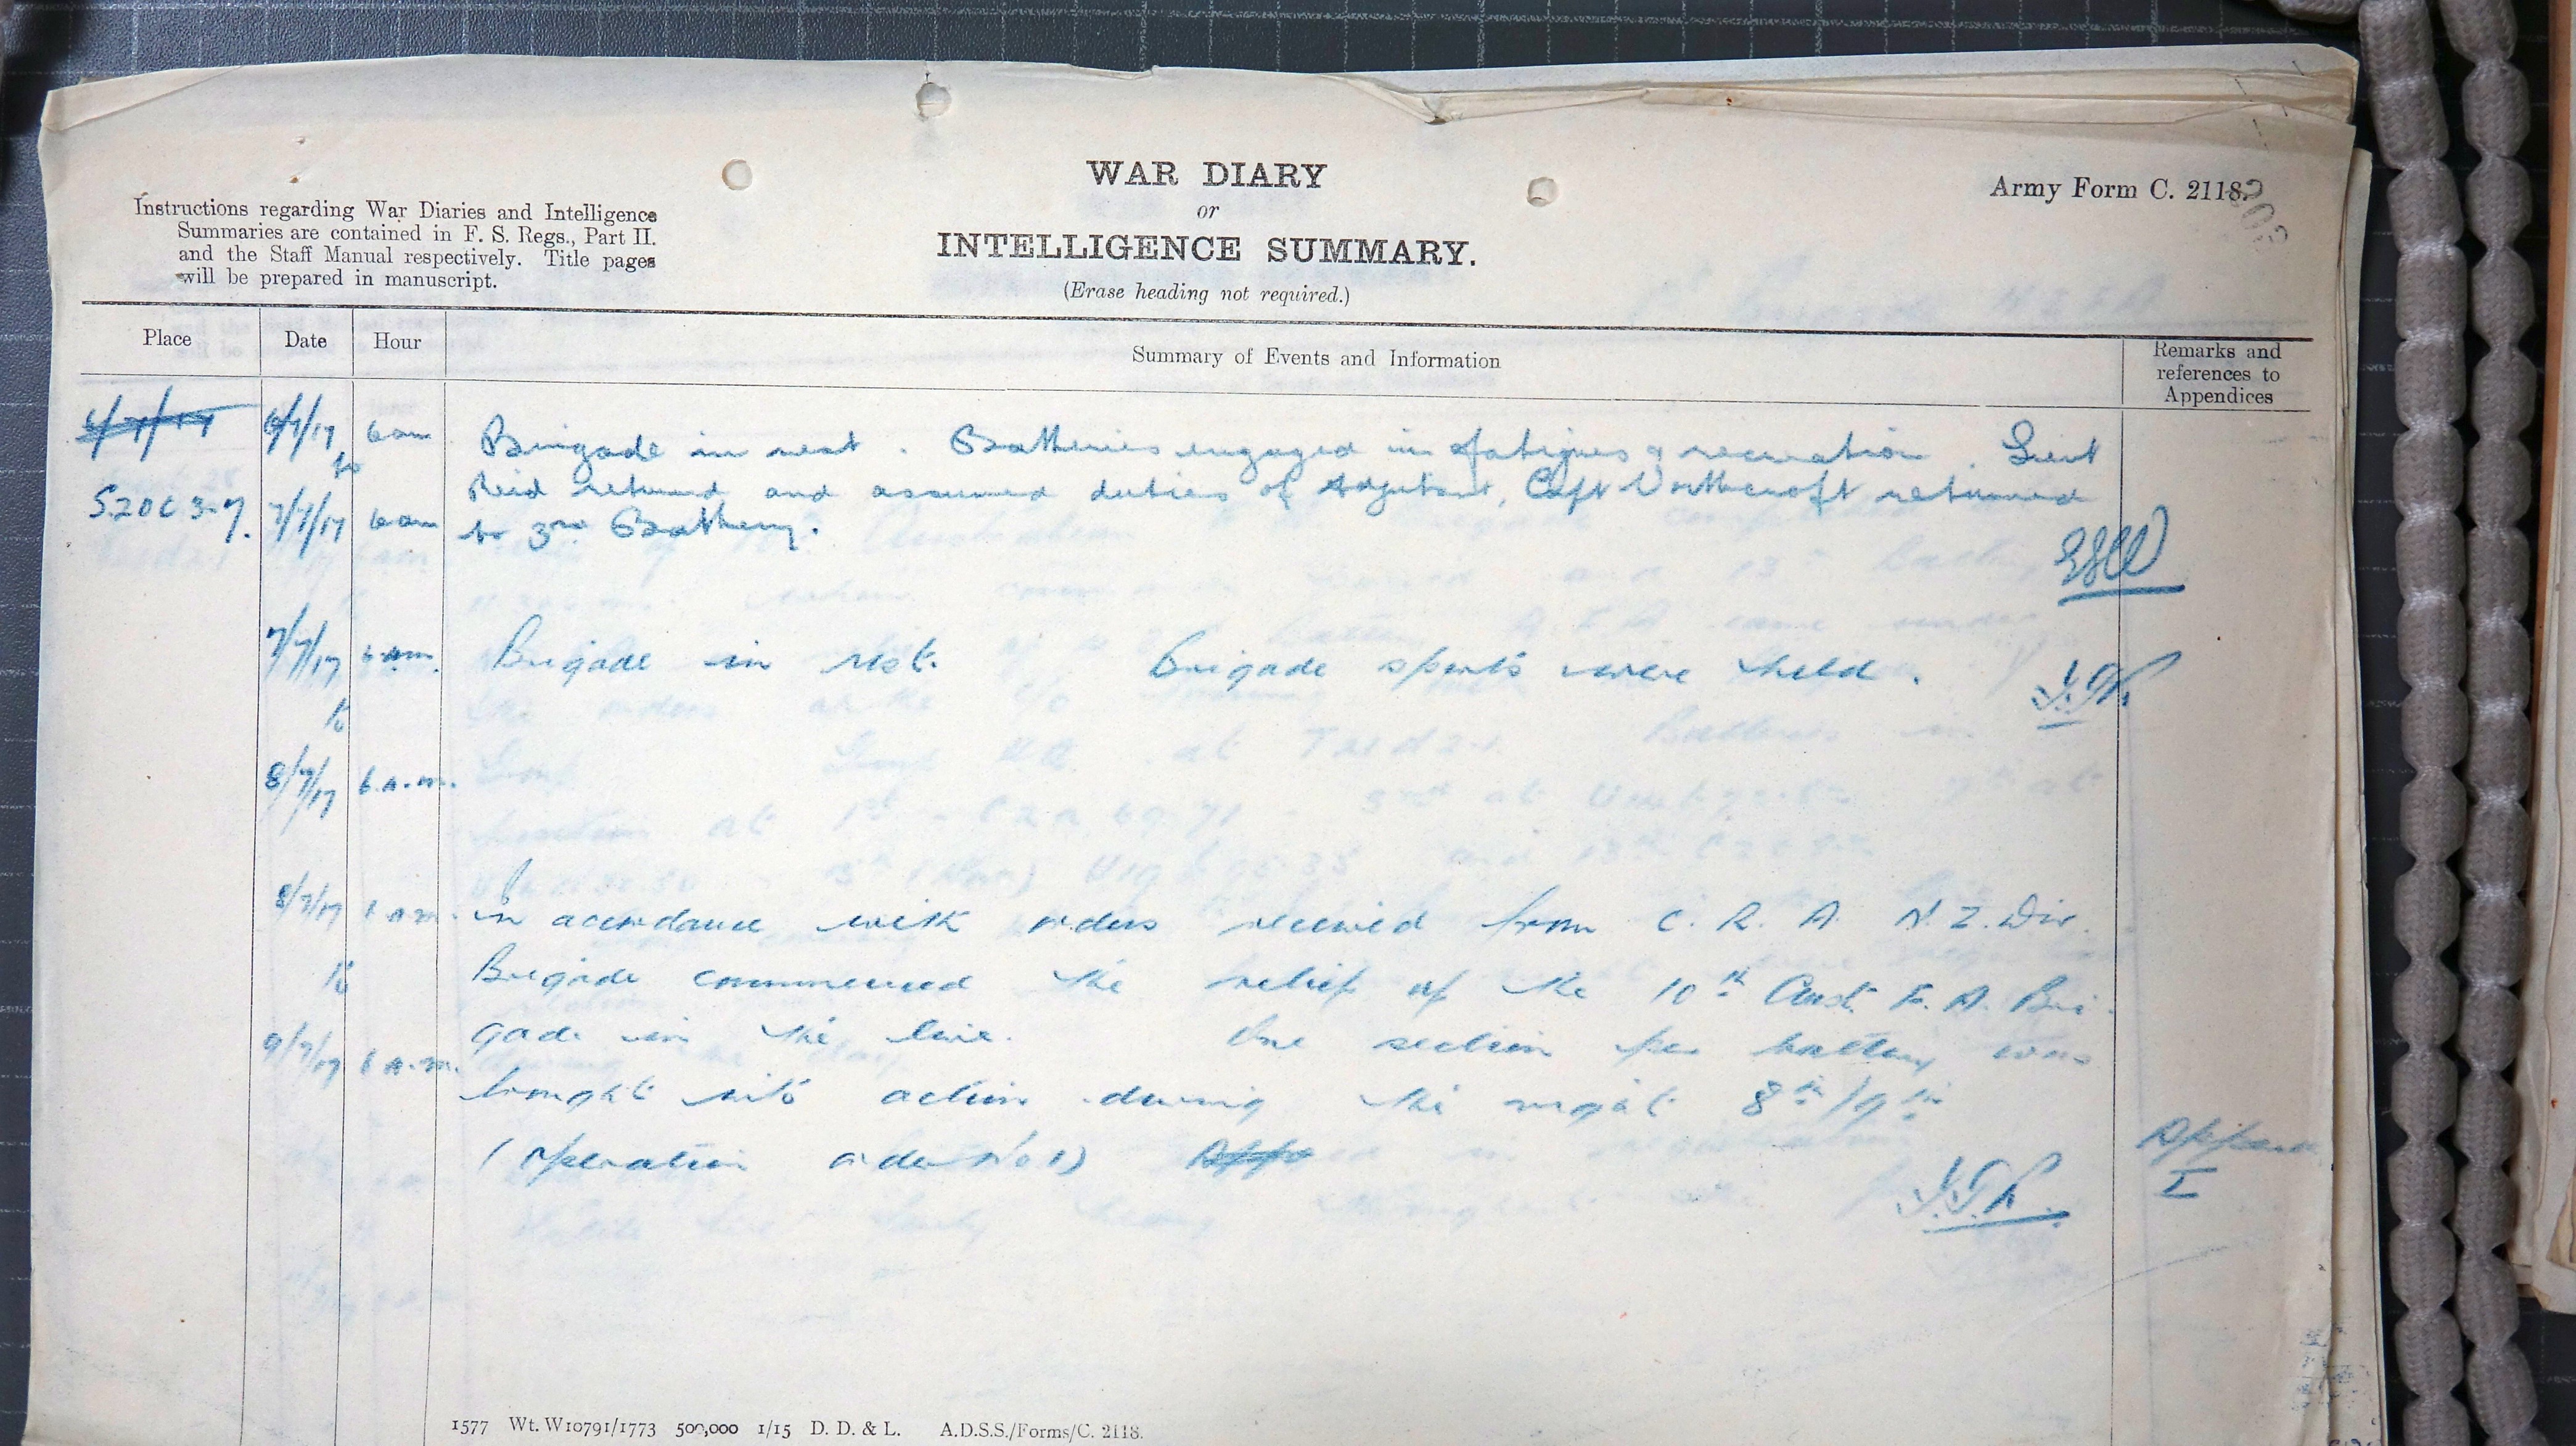 WAR DIARY
or
INTELLIGENCE SUMMARY.
(Erase heading not required.)
Army Form C. 2118.
Instructions regarding War Diaries and Intelligence
Summaries are contained in F. S. Regs., Part II.
and the Staff Manual respectively. Title pages
will be prepared in manuscript.
Place
Date
Hour
Summary of Events and Information
Remarks and
references to
Appendices
6/7/17 6/7/17 6 am Brigade in rest. Batteries engaged in fatigues & recreation. Lieut
to
S20C 3.7. 7/7/17 6 am Reid returned and assumed duties of Adjutant, Capt Northcroft returned
to 3rd Battery.
7/7/17 6 am. Brigade in rest. Brigade sports were held. J.G.R.
to
8/7/17 6 a.m.
8/7/17 6 a.m. In accordance with orders received from C. R. A. N. Z. Div.
to Brigade commenced the relief of the 10th Aust. F. A. Bri-
gade in the line. One section per battery was
9/7/17 6 a.m. brought into action during the night 8th/9th
(Operation order No 1) App J.G.R.
Appendix
I
1577 Wt. W10791/1773 500,000 1/15 D. D. & L. A.D.S.S./Forms/C. 2118.